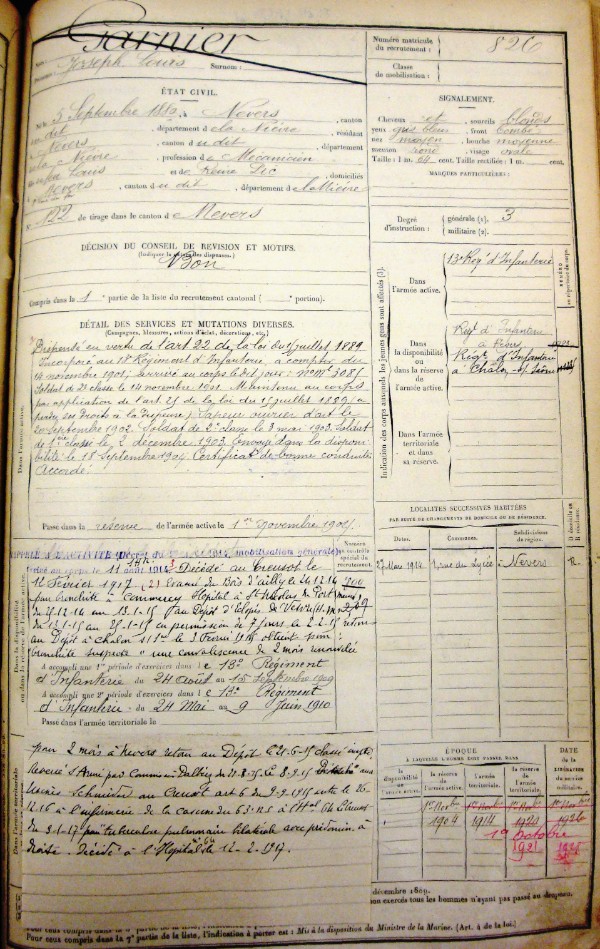 Garnier
Nom :
Prénoms : Joseph Louis Surnom :
Numéro matricule
du recrutement :
826
Classe
de mobilisation :
ÉTAT CIVIL.
Né le 5 Septembre 188 , à Nevers, canton
du dit, département de la Nièvre, résidant
à Nevers, canton du dit, département
de la Nièvre, profession de Mécanicien
Louis et de Reine Pic, domiciliés
à Nevers, canton du dit, département de la Nièvre
N° 122 de tirage dans le canton de Nevers
SIGNALEMENT.
Cheveux et sourcils blonds
yeux gris bleu, front bombé
nez moyen, bouche moyenne
menton rond, visage ovale
Taille : 1 m. 64 cent. Taille rectifiée : 1 m. cent.
MARQUES PARTICULIÈRES :
Degré
d'instruction :
générale (1). 3
militaire (2).
DÉCISION DU CONSEIL DE REVISION ET MOTIFS.
Bon
Compris dans la 1e partie de la liste du recrutement cantonal ( e portion).
DÉTAIL DES SERVICES ET MUTATIONS DIVERSES.
(Campagnes, blessures, actions d'éclat, décorations, etc.)
Dispensé en vertu de l'art 22 de la loi du 15 juillet 1889
Incorporé au 13e Régiment d'Infanterie à compter du
14 novembre 1901, arrivé au corps le dit jour : No Mle 3085
Soldat de 2e classe le 14 novembre 1901. Maintenu au corps
par application de l'art 25 de la loi du 15 juillet 1889 (a
perdu ses Droits à la Dispense) Sapeur ouvrier d'art le
20 septembre 1902. Soldat de 2e classe le 3 mai 1903. Soldat
de 1ère classe le 2 décembre 1903. Envoyé dans la disponi-
bilité le 18 Septembre 1904. Certificat de bonne conduite
Accordé.
Passé dans la réserve de l'armée active le 1er Novembre 1904.
Indication des corps auxquels les jeunes gens sont affectés (3).
Dans
l'armée active.
13e Régt d'Infanterie
Dans
la disponibilité
ou dans la réserve
de l'armée active.
Régt d'Infanterie
à Nevers
Régt d'Infanterie
à Chalon s/ Saône
Dans
l'armée
territoriale
et dans
sa réserve.
LOCALITÉS SUCCESSIVES HABITÉES
PAR SUITE DE CHANGEMENTS DE DOMICILE OU DE RÉSIDENCE.
Dates.
Communes.
Subdivisions
de région.
D domicile ou
R résidence.
27 Mars 1912
1, rue du Lycée
Nevers
R.
Numéro
au contrôle
spécial du
recrutement.
RAPPELÉ À L'ACTIVITÉ (Décret du 1er août 1914, mobilisation générale)
Arrivé au corps le 11 août 1914. Décédé au Creusot le
12 Février 1917 (2) Evacué du Bois d'Ailly le 24.12.14
pour bronchite à Commercy Hôpital à St Nicolas du Port
du 25-12-14 au 13-1-15
du 13-1-15 au 25-1-15 en permission de 7 jours le 2-2-15 retour
au Dépôt à Chalon le 3 Février 1915 obtient pour :
bronchite suspecte " une convalescence de 2 mois renouvelée
A accompli une 1re période d'exercices dans le 13e Régiment
d'Infanterie du 24 Août au 15 Septembre 1909
A accompli une 2e période d'exercices dans le 13e Régiment
d'Infanterie du 24 Mai au 9 Juin 1910
Passé dans l'armée territoriale le
pour 2 mois à Nevers retour au Dépôt le 21-6-15 classé
le 8.9.15 aux
Usines Schneider au Creusot art 6 du 9-9-1915 entre le 26-
12.16 à l'infirmerie de la caserne du
du 9-1-17 pour tuberculose pulmonaire bilatérale avec prédomin. à
droite. Décédé à l'Hôpital le 12-2-1917.
ÉPOQUE
À LAQUELLE L'HOMME DOIT PASSER DANS
DATE
DE LA
LIBÉRATION
du service
militaire.
la disponibilité
de
l'armée active.
la réserve
de
l'armée active.
l'armée
territoriale.
la réserve
de l'armée
territoriale.
1er Nov. 1er Nov. 1er Nov. 1er Nov.
1904 1914 1920 1926
1er Octobre
1921
décembre 1889.
non exercés tous les hommes n'ayant pas passé au drapeau.
Pour ceux compris dans la 7e partie de la liste, l'indication à porter est : Mis à la disposition du Ministre de la Marine. (Art. 4 de la loi.)